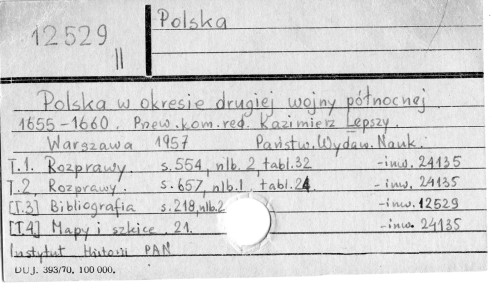 12529
II
Polska
Polska w okresie drugiej wojny północnej
1655-1660. Przew. kom. red. Kazimierz Lepszy.
Warszawa 1957 Państw. Wydaw. Nauk.
T.1. Rozprawy. s. 554, nlb. 2, tabl. 32 - inw. 24135
T.2. Rozprawy. s. 657, nlb. 1, tabl. 24 - inw. 24135
[T.3] Bibliografia s. 218, nlb. 2 - inw. 12529
[T.4] Mapy i szkice. 21. - inw. 24135
Instytut Historii PAN
DUJ. 393/70. 100 000.